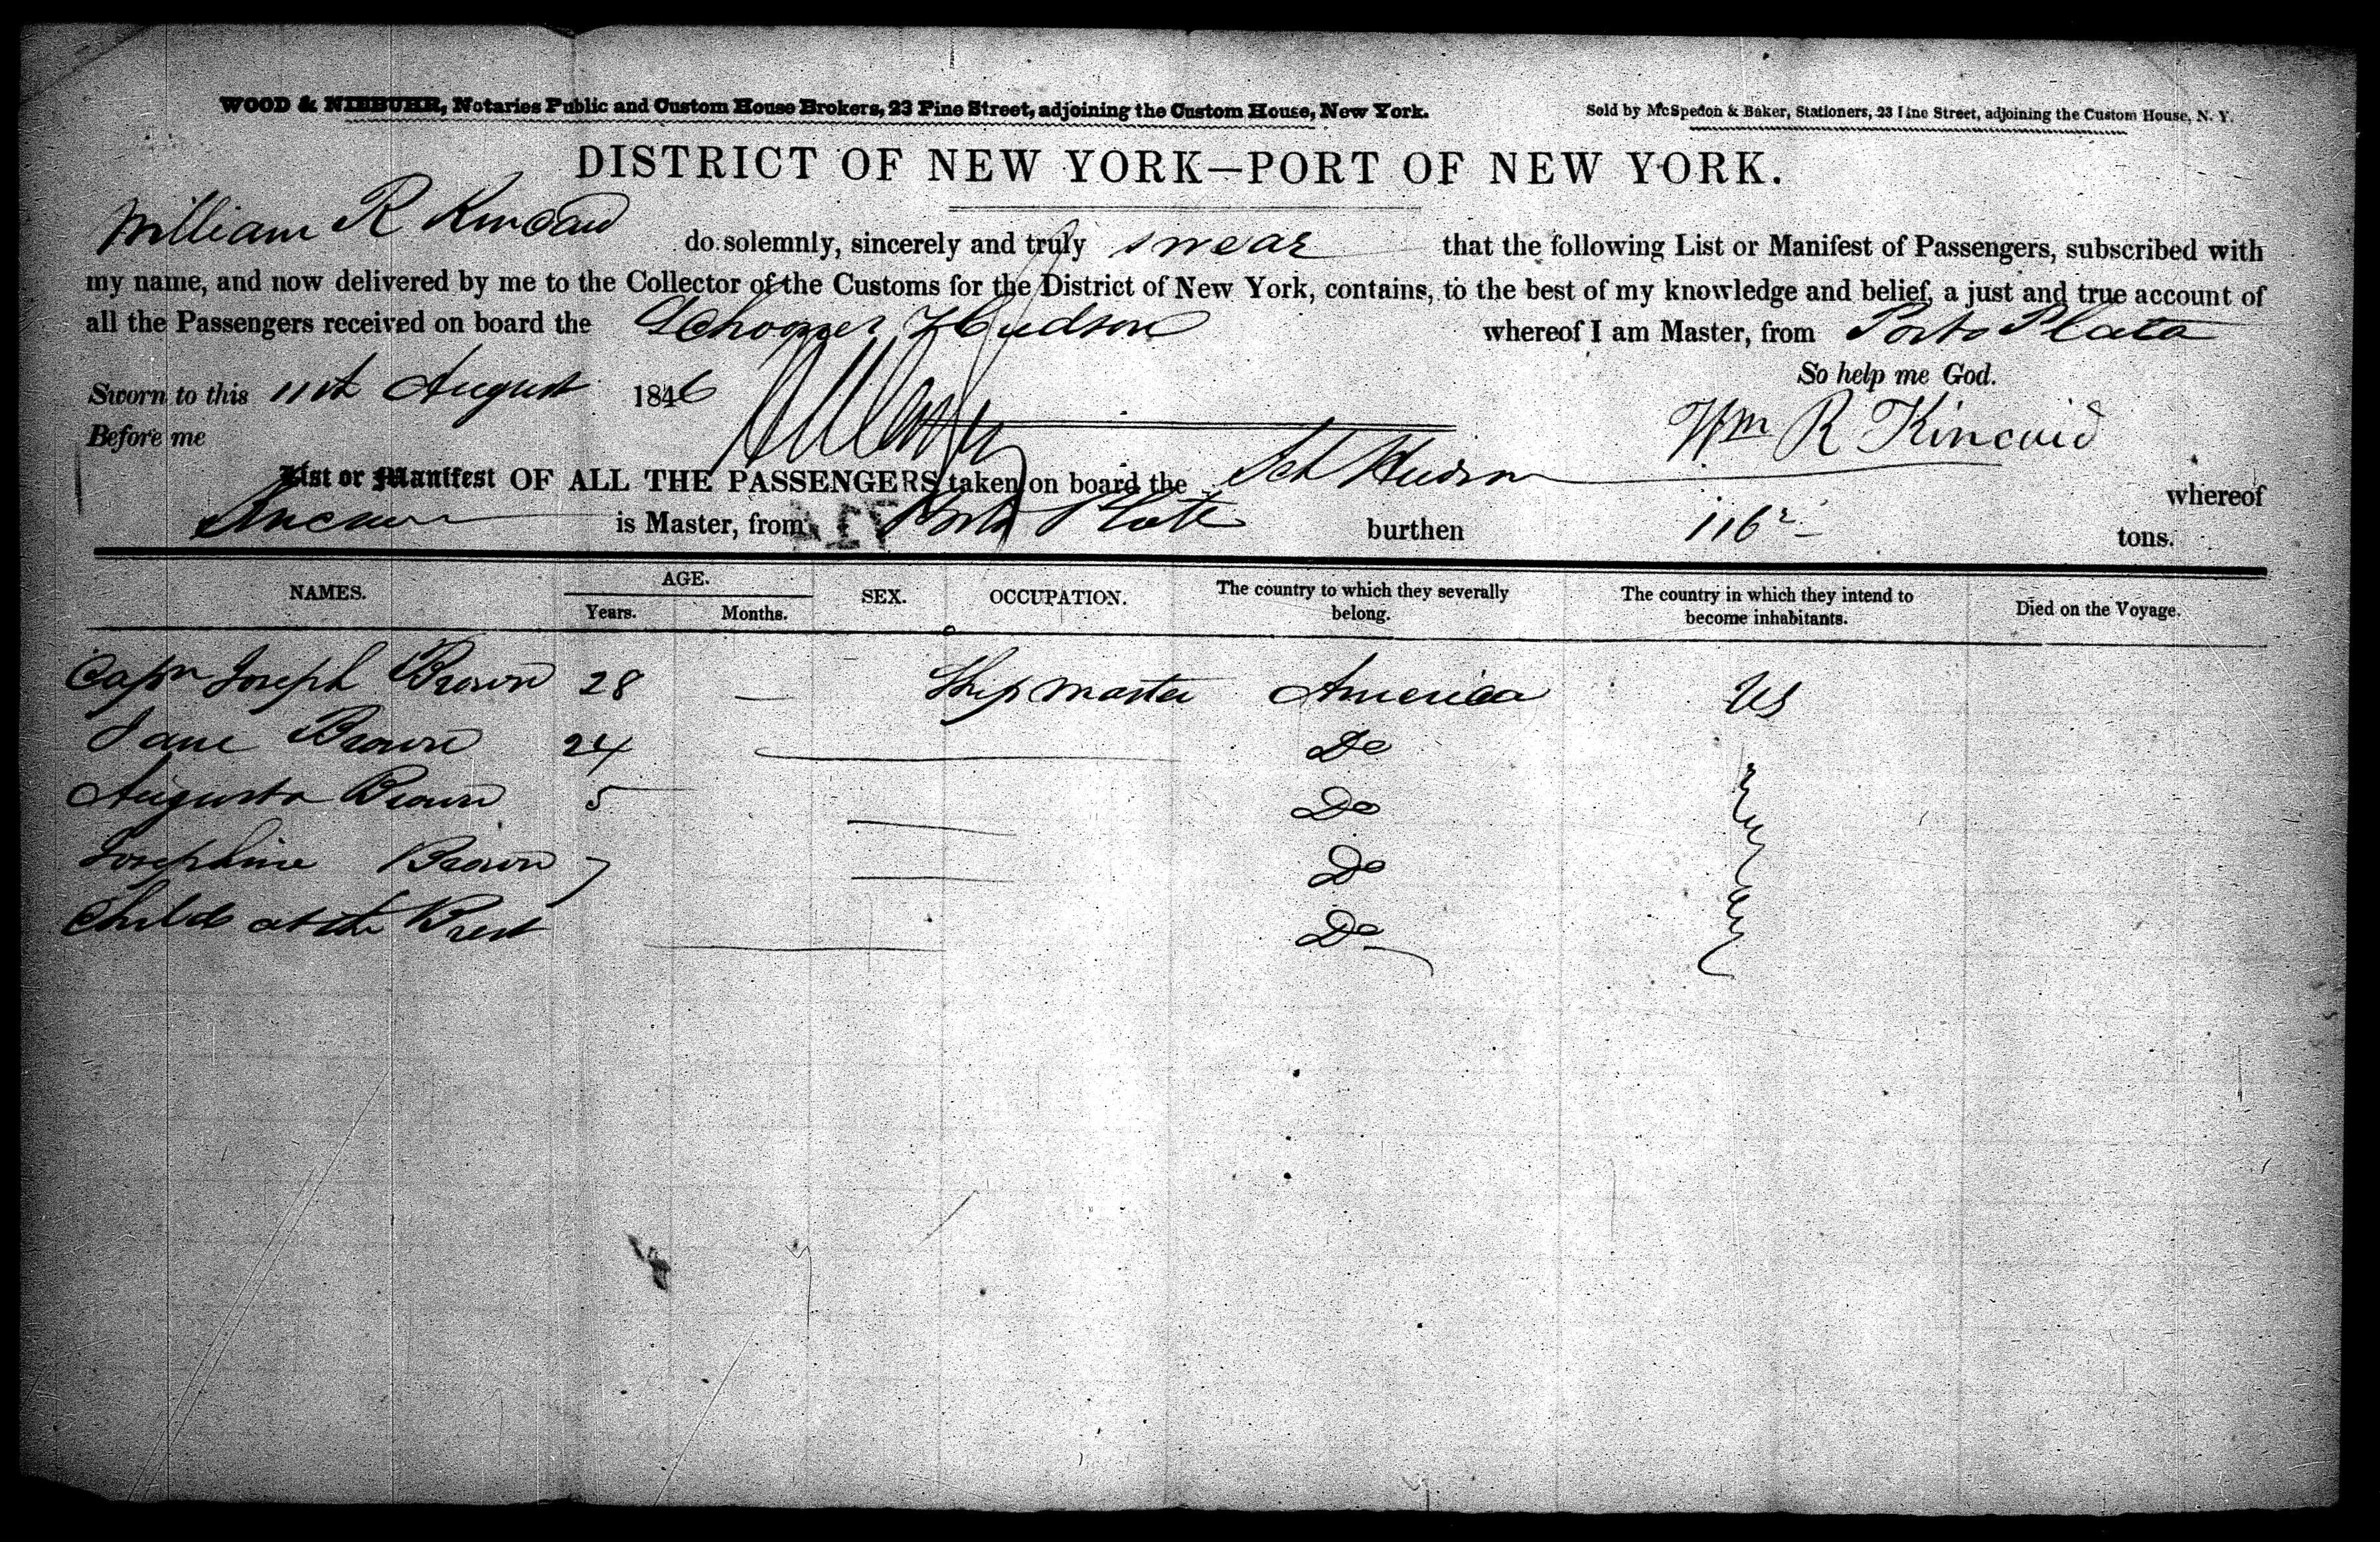 WOOD & NIEBUHR, Notaries Public and Custom House Brokers, 23 Pine Street, adjoining the Custom House, New York.
Sold by McSpedon & Baker, Stationers, 23 Pine Street, adjoining the Custom House, N. Y.
DISTRICT OF NEW YORK—PORT OF NEW YORK.
William R Kincaid do solemnly, sincerely and truly swear that the following List or Manifest of Passengers, subscribed with
my name, and now delivered by me to the Collector of the Customs for the District of New York, contains, to the best of my knowledge and belief, a just and true account of
all the Passengers received on board the Schooner Hudson whereof I am Master, from Porto Plata
So help me God.
Sworn to this 11th August 1846
Before me
Wm R Kincaid
List or Manifest OF ALL THE PASSENGERS taken on board the Sch Hudson whereof
is Master, from Porto Plate burthen 116 tons.
NAMES. AGE. Years. Months. SEX. OCCUPATION. The country to which they severally belong. The country in which they intend to become inhabitants. Died on the Voyage.
Capn Joseph Brown 28 — Ship master America US
Jane Brown 24 Do
Augusta Brown 5 Do
Josephine Brown Do
Child at the Brest Do